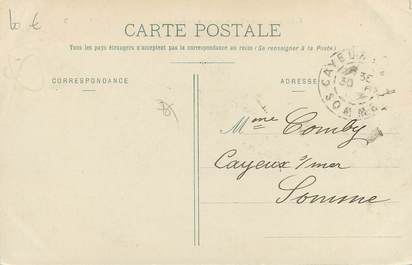 60 €
CARTE POSTALE
Tous les pays étrangers n'acceptent pas la correspondance au recto (Se renseigner à la Poste)
CORRESPONDANCE
ADRESSE
CAYEUX
30
SOMME
Mme Comby
Cayeux s/mer
Somme